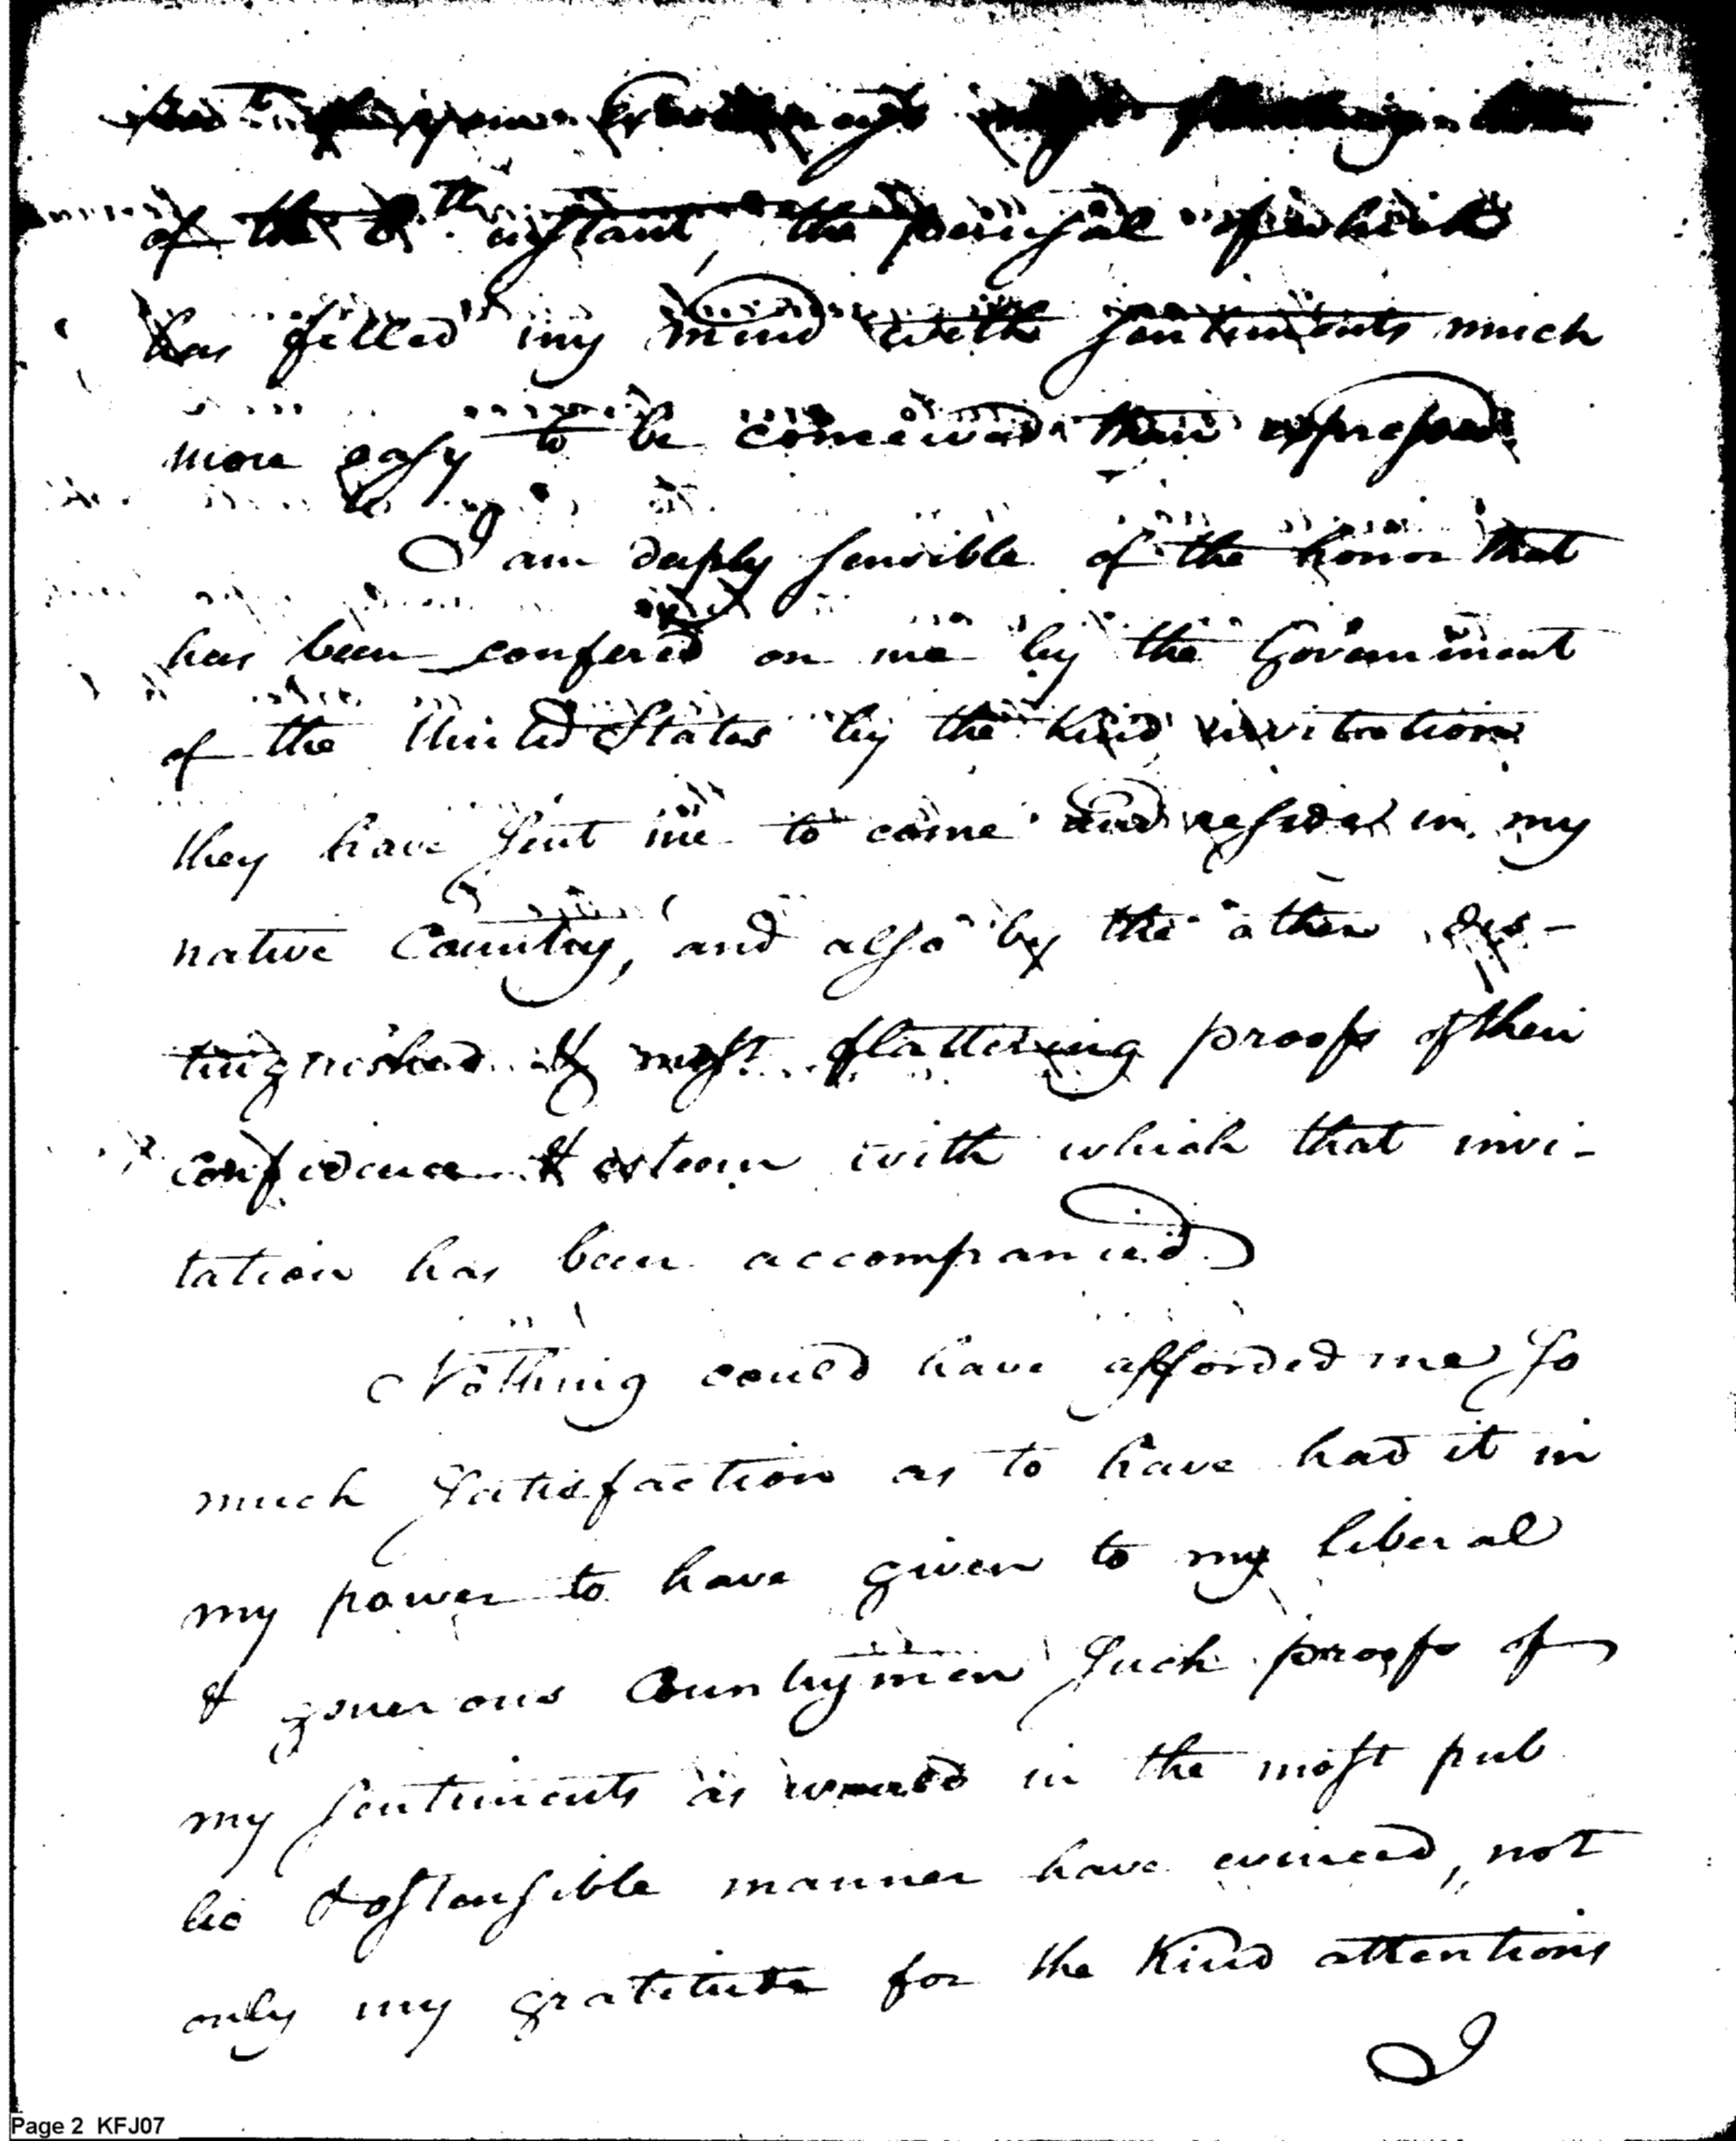 of the 8th instant, the perusal of which
has filled my mind with sentiments much
more easy to be conceived than expressed.
I am deeply sensible of the honor that
has been confered on me by the Government
of the United States by the kind invitation
they have sent me to come and reside in my
native Country, and also by the other dis-
tinguished & most flattering proofs of their
confidence & esteem with which that invi-
tation has been accompanied
Nothing could have afforded me so
much satisfaction as to have had it in
my power to have given to my liberal
& generous Countrymen such proofs of
my sentiments as would in the most pub
lic & ostensible manner have evinced, not
only my gratitude for the kind attentions
I
Page 2 KFJ07